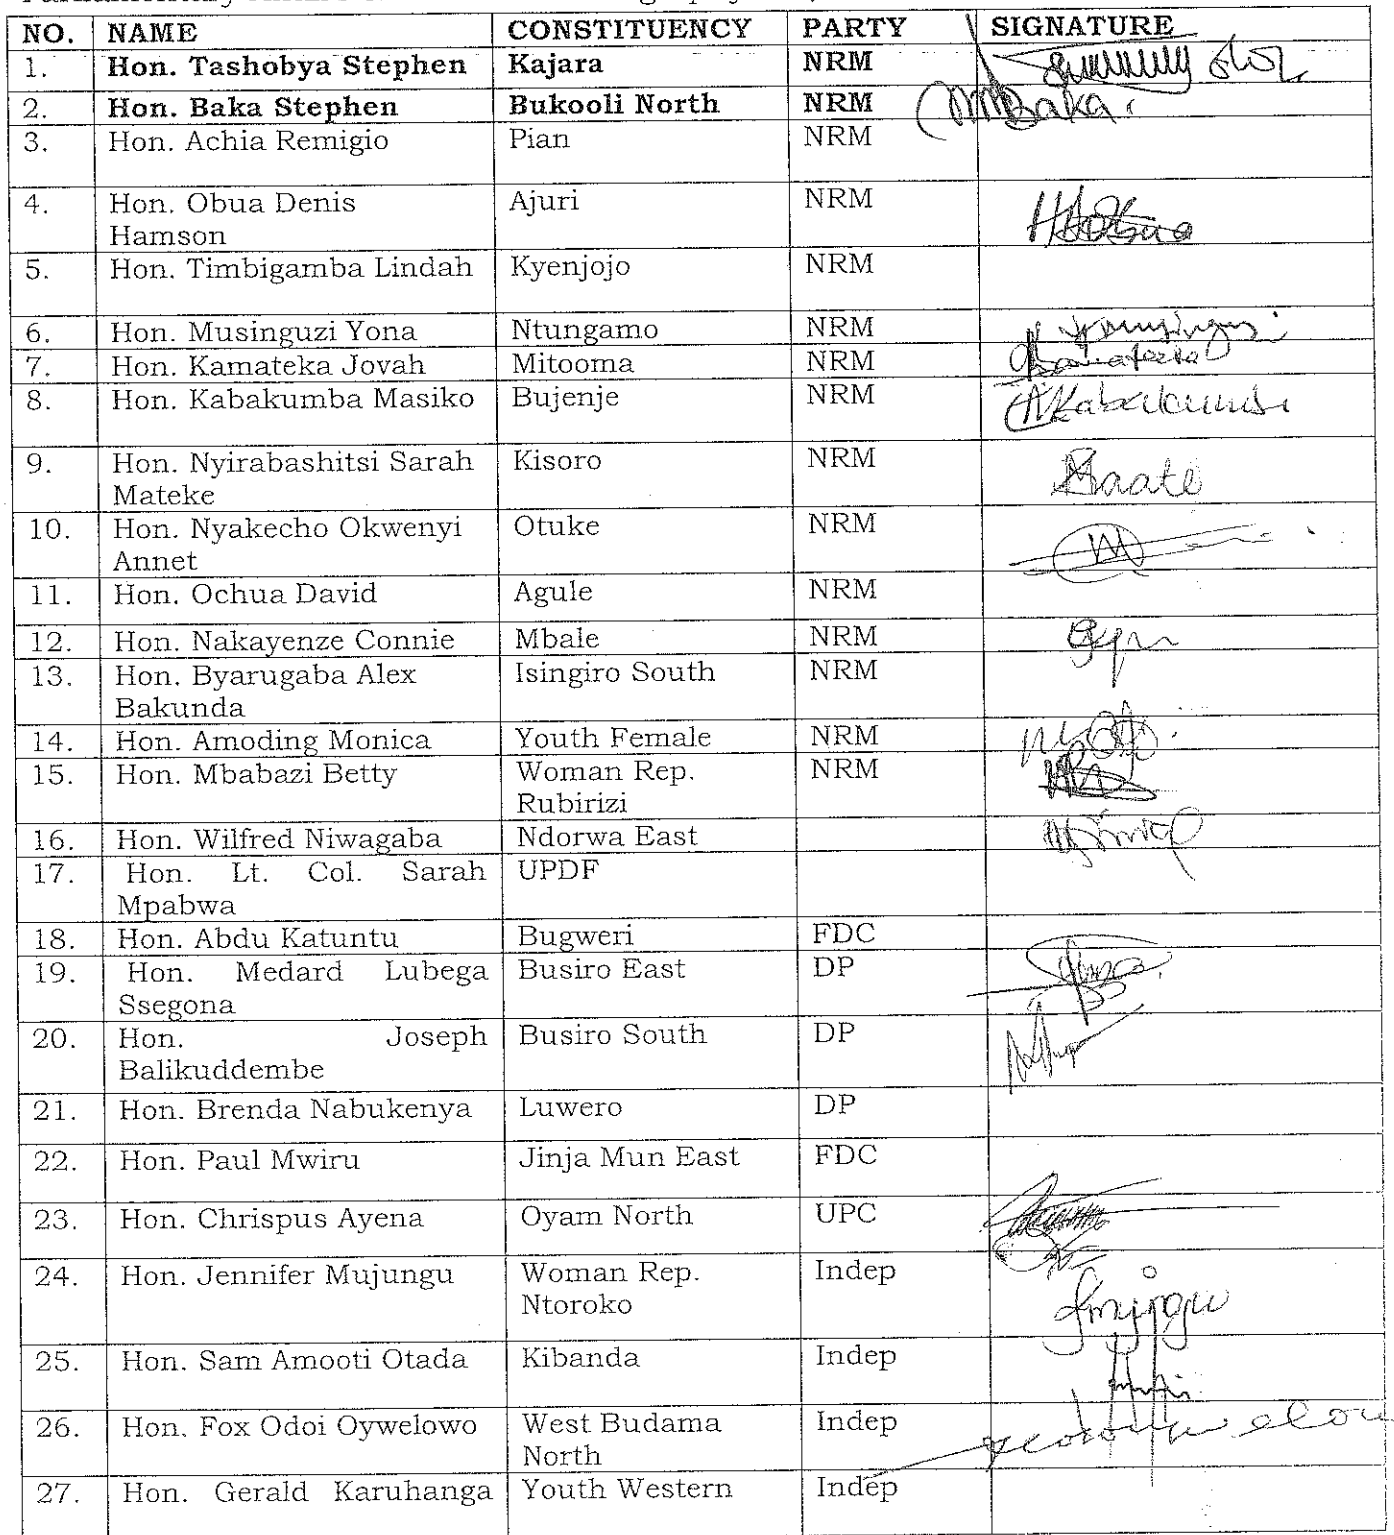 NO. NAME CONSTITUENCY PARTY SIGNATURE
1. Hon. Tashobya Stephen Kajara NRM
2. Hon. Baka Stephen Bukooli North NRM Baka
3. Hon. Achia Remigio Pian NRM
4. Hon. Obua Denis Ajuri NRM
Hamson
5. Hon. Timbigamba Lindah Kyenjojo NRM
6. Hon. Musinguzi Yona Ntungamo NRM
7. Hon. Kamateka Jovah Mitooma NRM
8. Hon. Kabakumba Masiko Bujenje NRM
9. Hon. Nyirabashitsi Sarah Kisoro NRM
Mateke
10. Hon. Nyakecho Okwenyi Otuke NRM
Annet
11. Hon. Ochua David Agule NRM
12. Hon. Nakayenze Connie Mbale NRM
13. Hon. Byarugaba Alex Isingiro South NRM
Bakunda
14. Hon. Amoding Monica Youth Female NRM
15. Hon. Mbabazi Betty Woman Rep. NRM
Rubirizi
16. Hon. Wilfred Niwagaba Ndorwa East
17. Hon. Lt. Col. Sarah UPDF
Mpabwa
18. Hon. Abdu Katuntu Bugweri FDC
19. Hon. Medard Lubega Busiro East DP
Ssegona
20. Hon. Joseph Busiro South DP
Balikuddembe
21. Hon. Brenda Nabukenya Luwero DP
22. Hon. Paul Mwiru Jinja Mun East FDC
23. Hon. Chrispus Ayena Oyam North UPC
24. Hon. Jennifer Mujungu Woman Rep. Indep
Ntoroko
25. Hon. Sam Amooti Otada Kibanda Indep
26. Hon. Fox Odoi Oywelowo West Budama Indep
North
27. Hon. Gerald Karuhanga Youth Western Indep